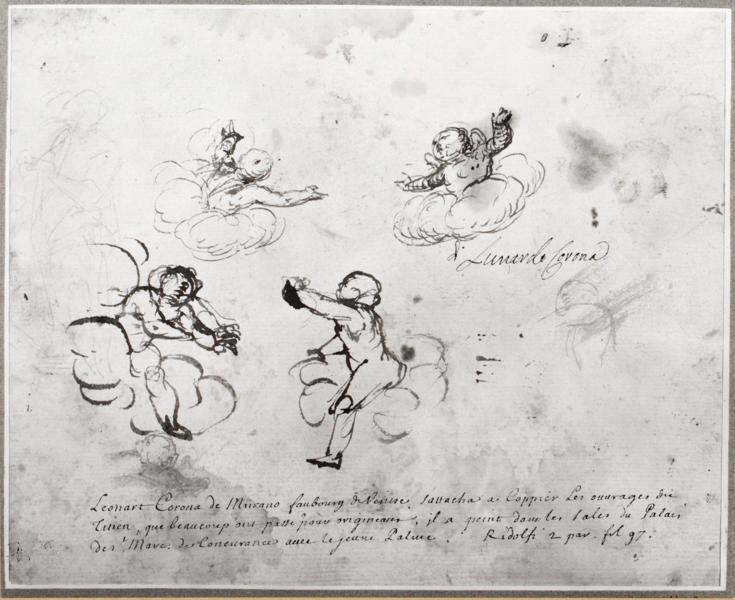 di Lunardo Corona
Leonart Corona de Murano faubourg de Venise, sattacha a Coppier Les ouvrages du
Titien, que beaucoup ont passé pour origineaux, il a peint dans les Sales du Palais
de St Marc, de Concurance avec le jeune Palme. Ridolfi 2 par. fol 97.